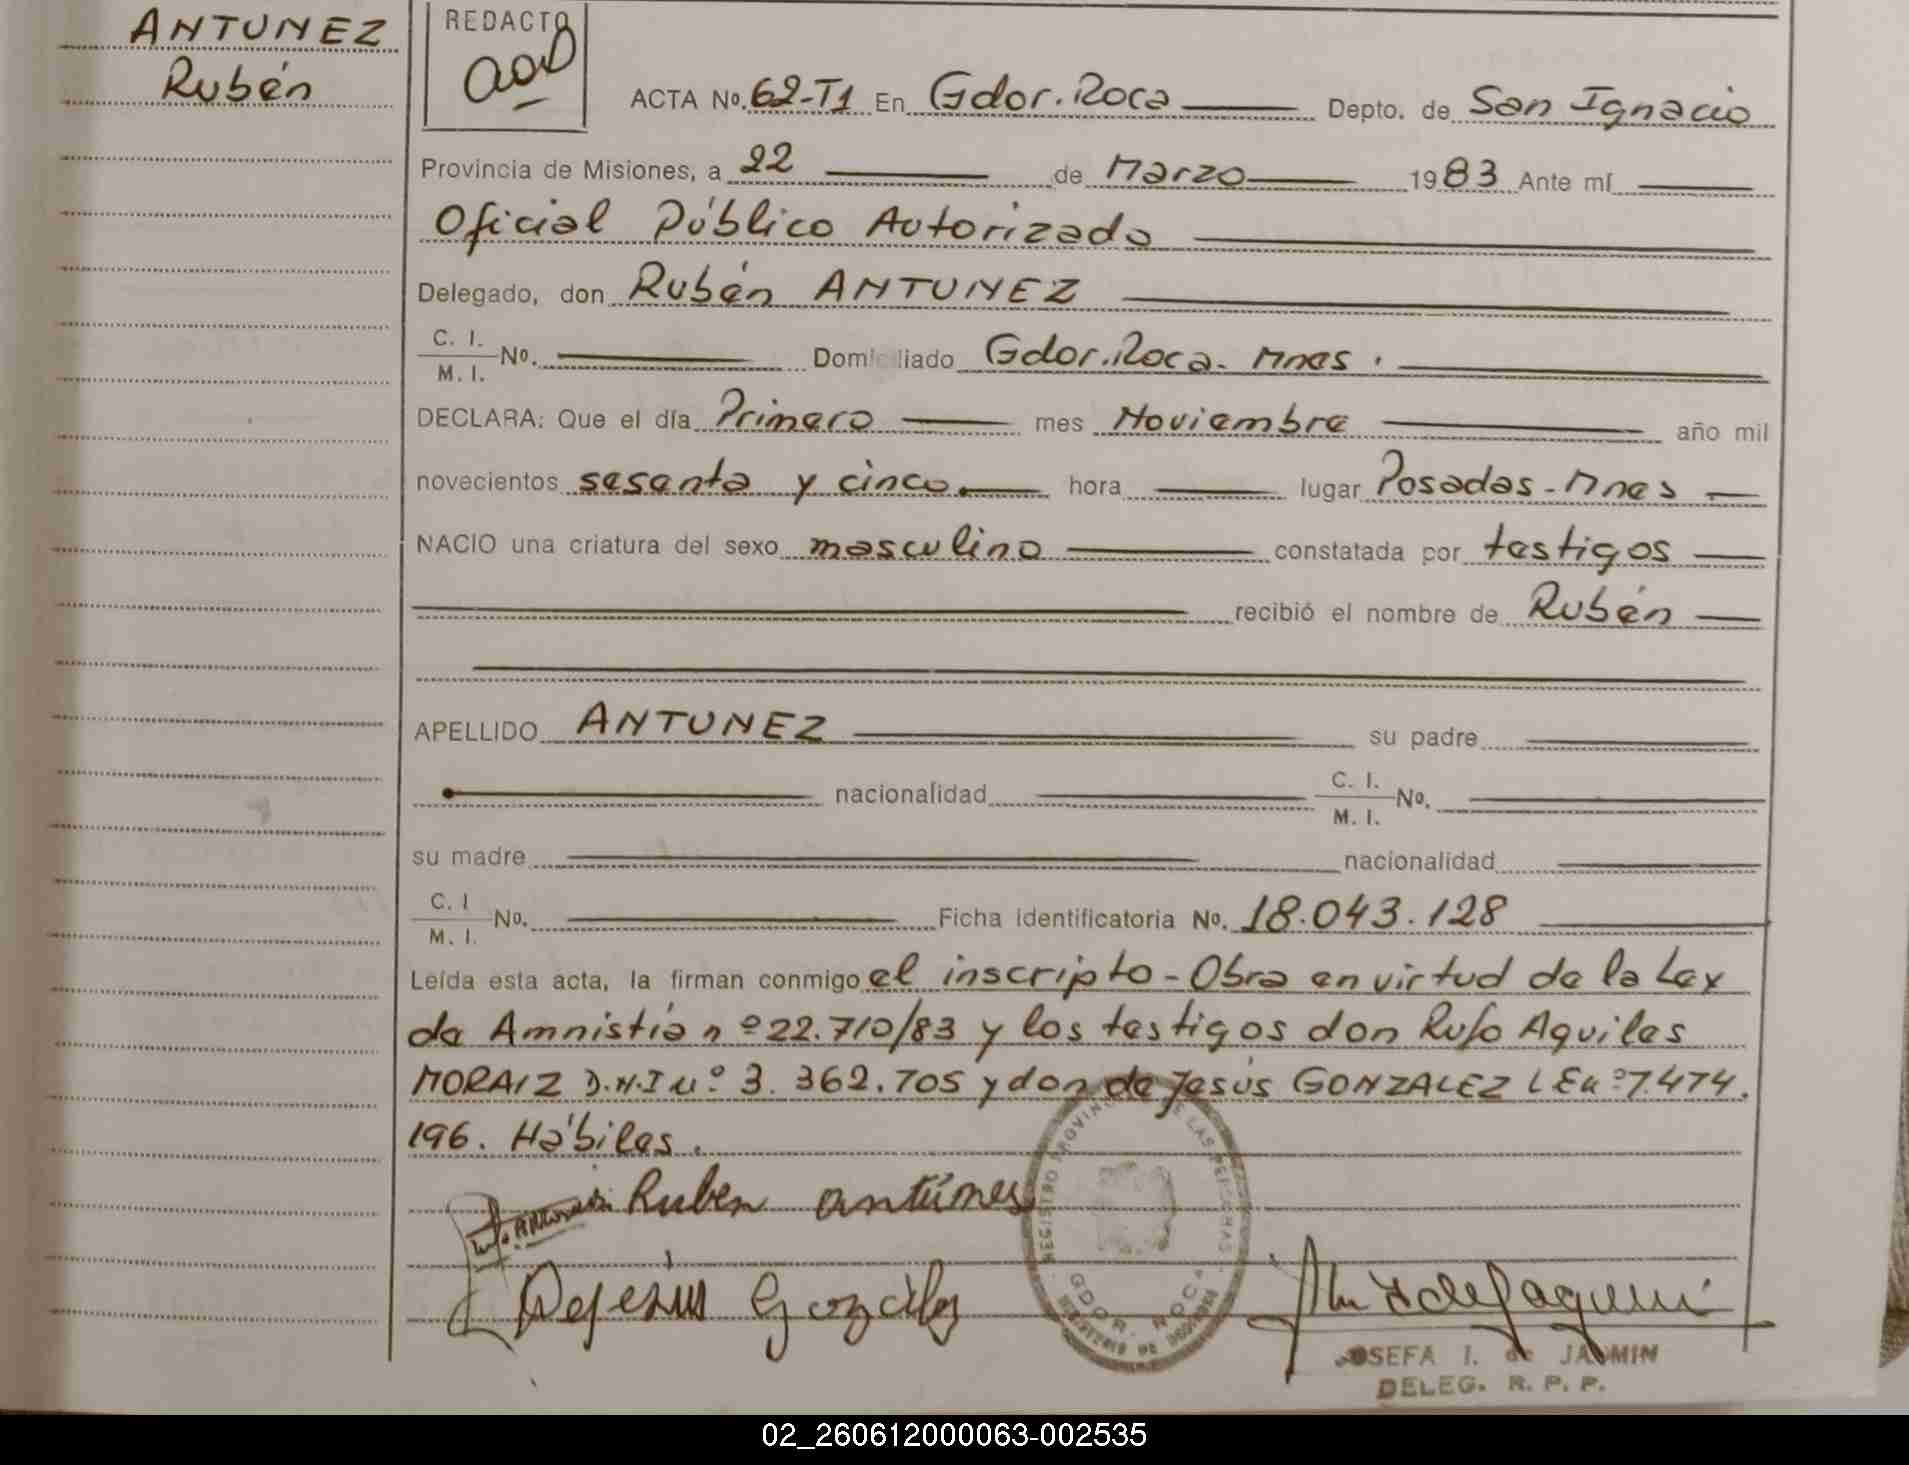 ANTUNEZ
Rubén
REDACTO
ACTA No. 62-T1 En Gdor. Roca Depto. de San Ignacio
Provincia de Misiones, a 22 de Marzo 1983 Ante mí
Oficial Público Autorizado
Delegado, don Rubén ANTUNEZ
C. I.
M. I. No. Domiciliado Gdor. Roca - Mnes.
DECLARA: Que el día Primero mes Noviembre año mil
novecientos sesenta y cinco. hora lugar Posadas - Mnes
NACIO una criatura del sexo masculino constatada por testigos
recibió el nombre de Rubén
APELLIDO ANTUNEZ su padre
nacionalidad C. I. M. I. No.
su madre nacionalidad
C. I M. I. No. Ficha identificatoria No. 18.043.128
Leída esta acta, la firman conmigo el inscripto - Obra en virtud de la Ley
de Amnistía nº 22.710/83 y los testigos don Rufo Aquiles
MORAIZ D.N.I nº 3.362.705 y don de Jesús GONZALEZ LE nº 7.474.
196. Hábiles.
Ruben antúnes
Dejesus González
REGISTRO PROVINCIAL DE LAS PERSONAS
GDOR. ROCA
JOSEFA I. de JASMIN
DELEG. R. P. P.
02_260612000063-002535